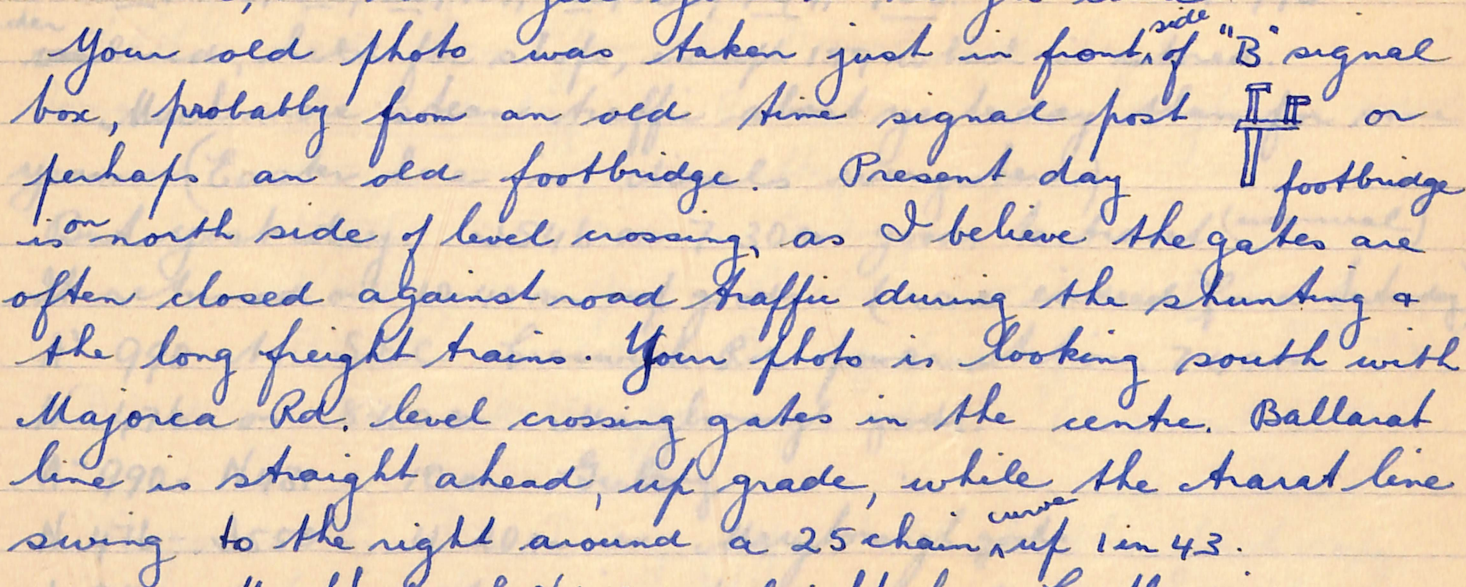 Your old photo was taken just in front side of "B" signal
box, probably from an old time signal post or
perhaps an old footbridge. Present day footbridge
is on north side of level crossing, as I believe the gates are
often closed against road traffic during the shunting &
the long freight trains. Your photo is looking south with
Majorca Rd. level crossing gates in the centre. Ballarat
line is straight ahead, up grade, while the Ararat line
swing to the right around a 25 chain curve up 1 in 43.